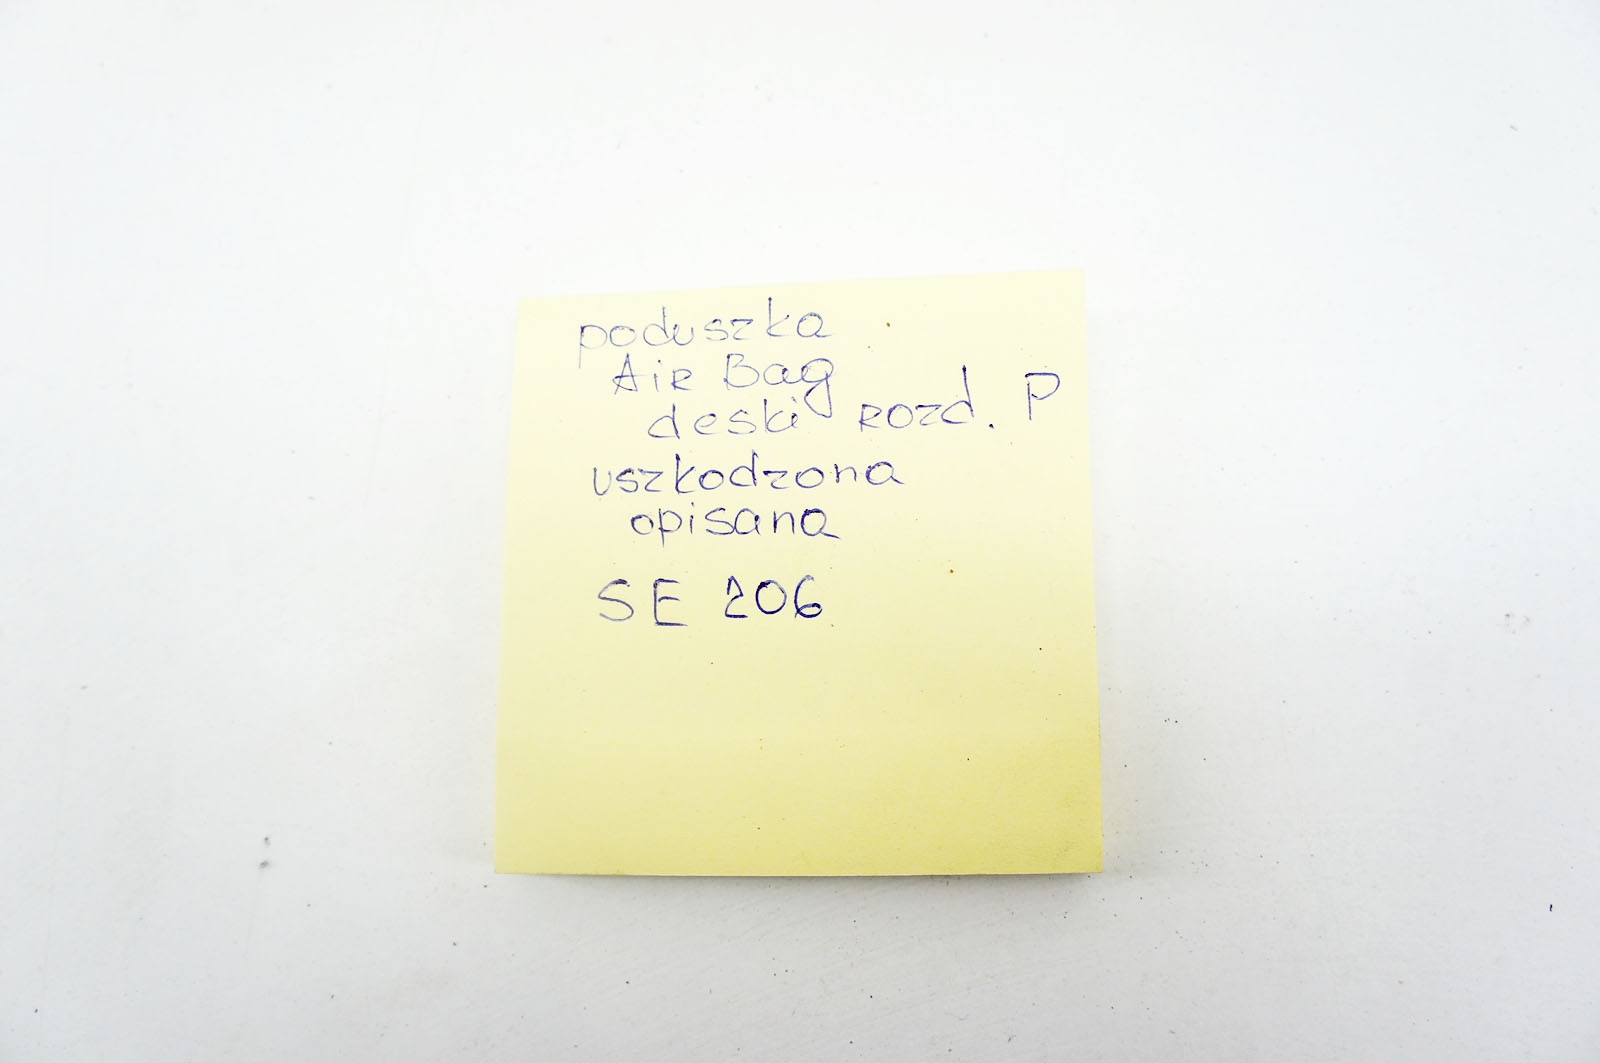 poduszka
Air Bag
deski rozd. P
uszkodzona
opisana
SE 206